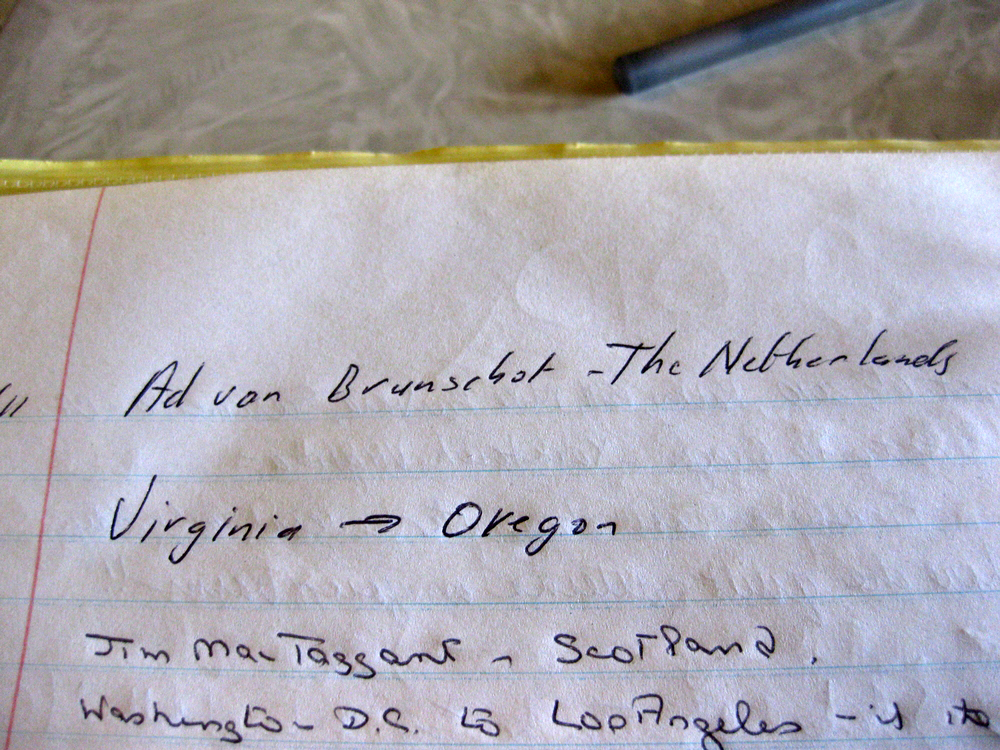 Ad van Brunschot - The Netherlands
Virginia → Oregon
Jim MacTaggart - Scotland.
Washington D.C. to Los Angeles - if